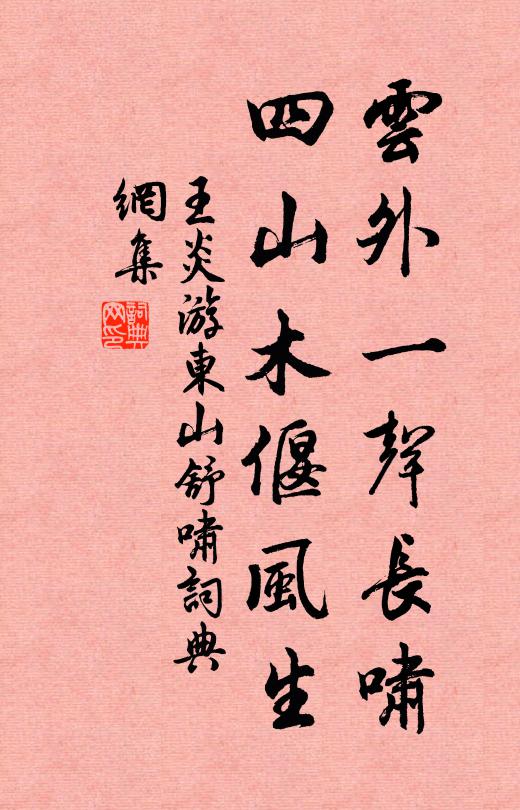 雲外一聲長嘯
四山木偃風生
王炎游東山舒嘯詞典
網集
詞典
网印